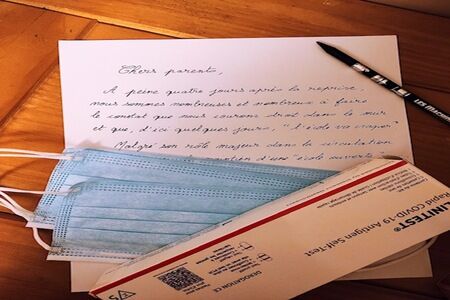 Chers parent,
A peine quatre jours après la reprise,
nous sommes nombreuses et nombreux à faire
le constat que nous courons droit dans le mur
et que, d'ici quelques jours, "l'école va craquer".
Malgré son rôle majeur dans la circulation
d'une "école ouverte"
LINITEST®
Rapid COVID-19 Antigen Self-Test
DEROGATION CE